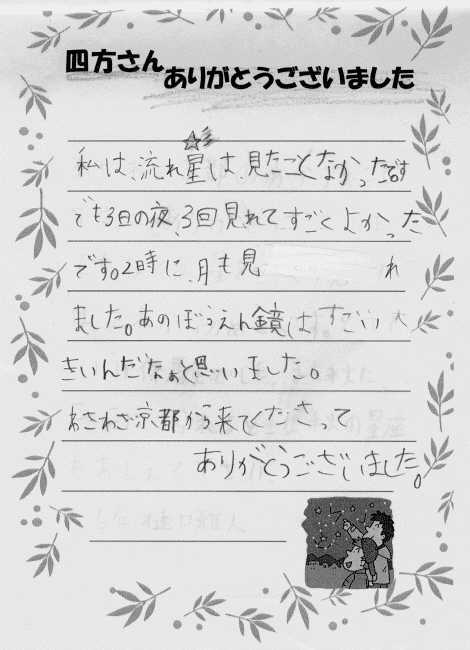 四方さん
ありがとうございました
私は、流れ星は、見たことなかったです
でも3日の夜、3回見れてすごくよかった
です。2時に、月も見 れ
ました。あのぼうえん鏡はすごい大
きいんだなぁと思いました。
わざわざ京都から来てくださって
ありがとうございました。